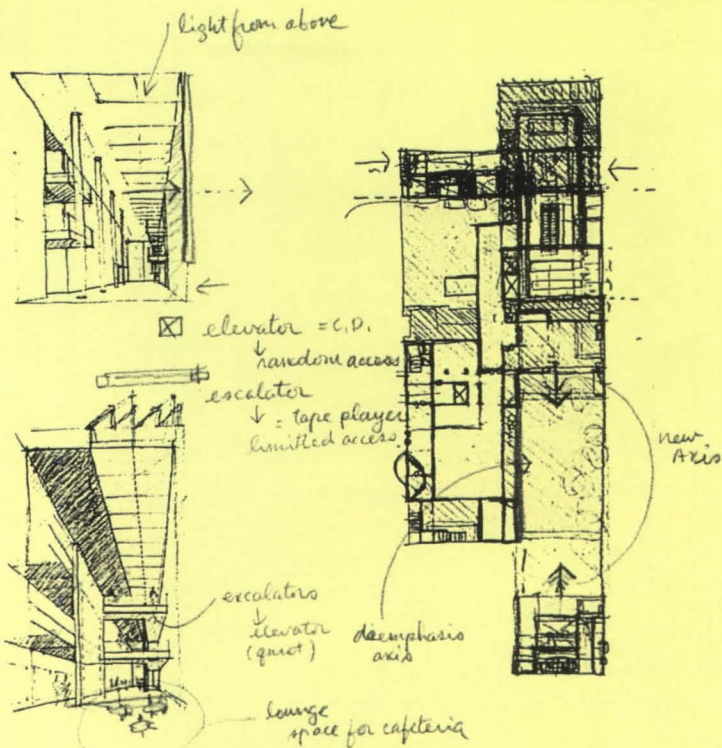 light from above
elevator = C.D.
random access
escalator
= tape player
limitted access
new
Axis
escalators
elevator
(quiet)
deemphasis
axis
lounge
space for cafeteria